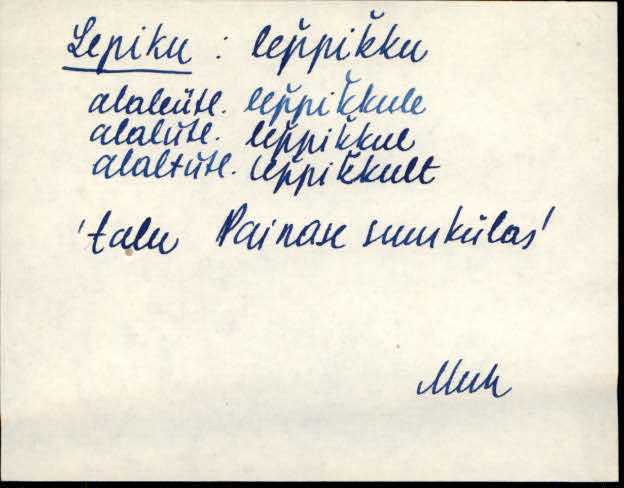 Lepiku : lep̆pik̆ku
alaleütl. lep̆pik̆kule
alalütl. lep̆pik̆kul
alaltütl. lep̆pik̆kult
'talu Painase suurkülas'
Muh